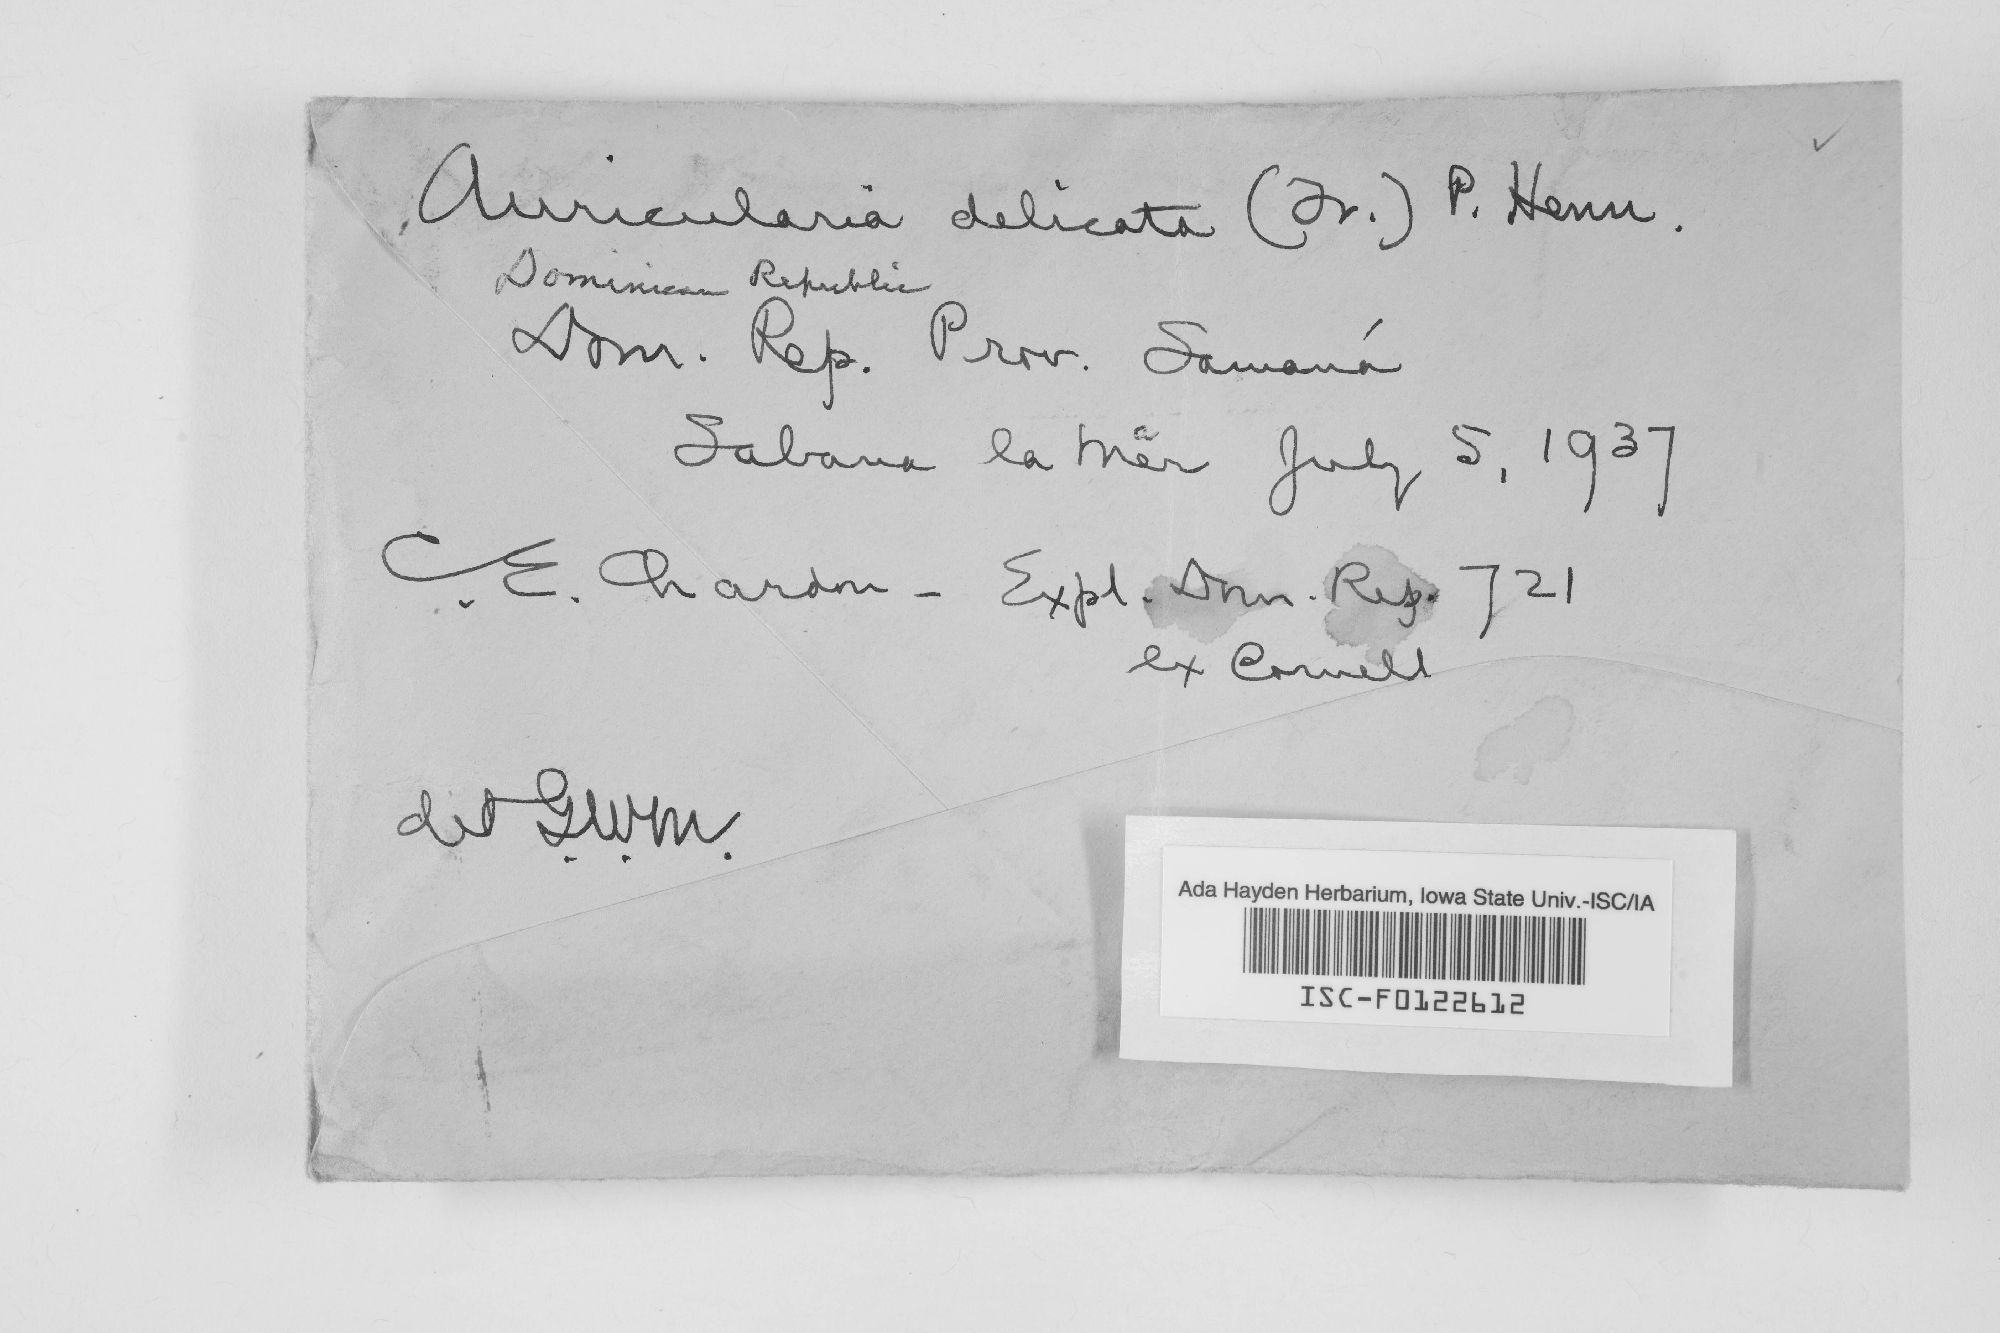 Auricularia delicata (Fr.) P. Henn.
Dominican Republic
Dom. Rep. Prov. Samaná
Sabana la Mar July 5, 1937
C. E. Chardon - Expl. Dom. Rep. 721
ex Cornell
det G.W.M.
Ada Hayden Herbarium, Iowa State Univ.-ISC/IA
ISC-F0122612